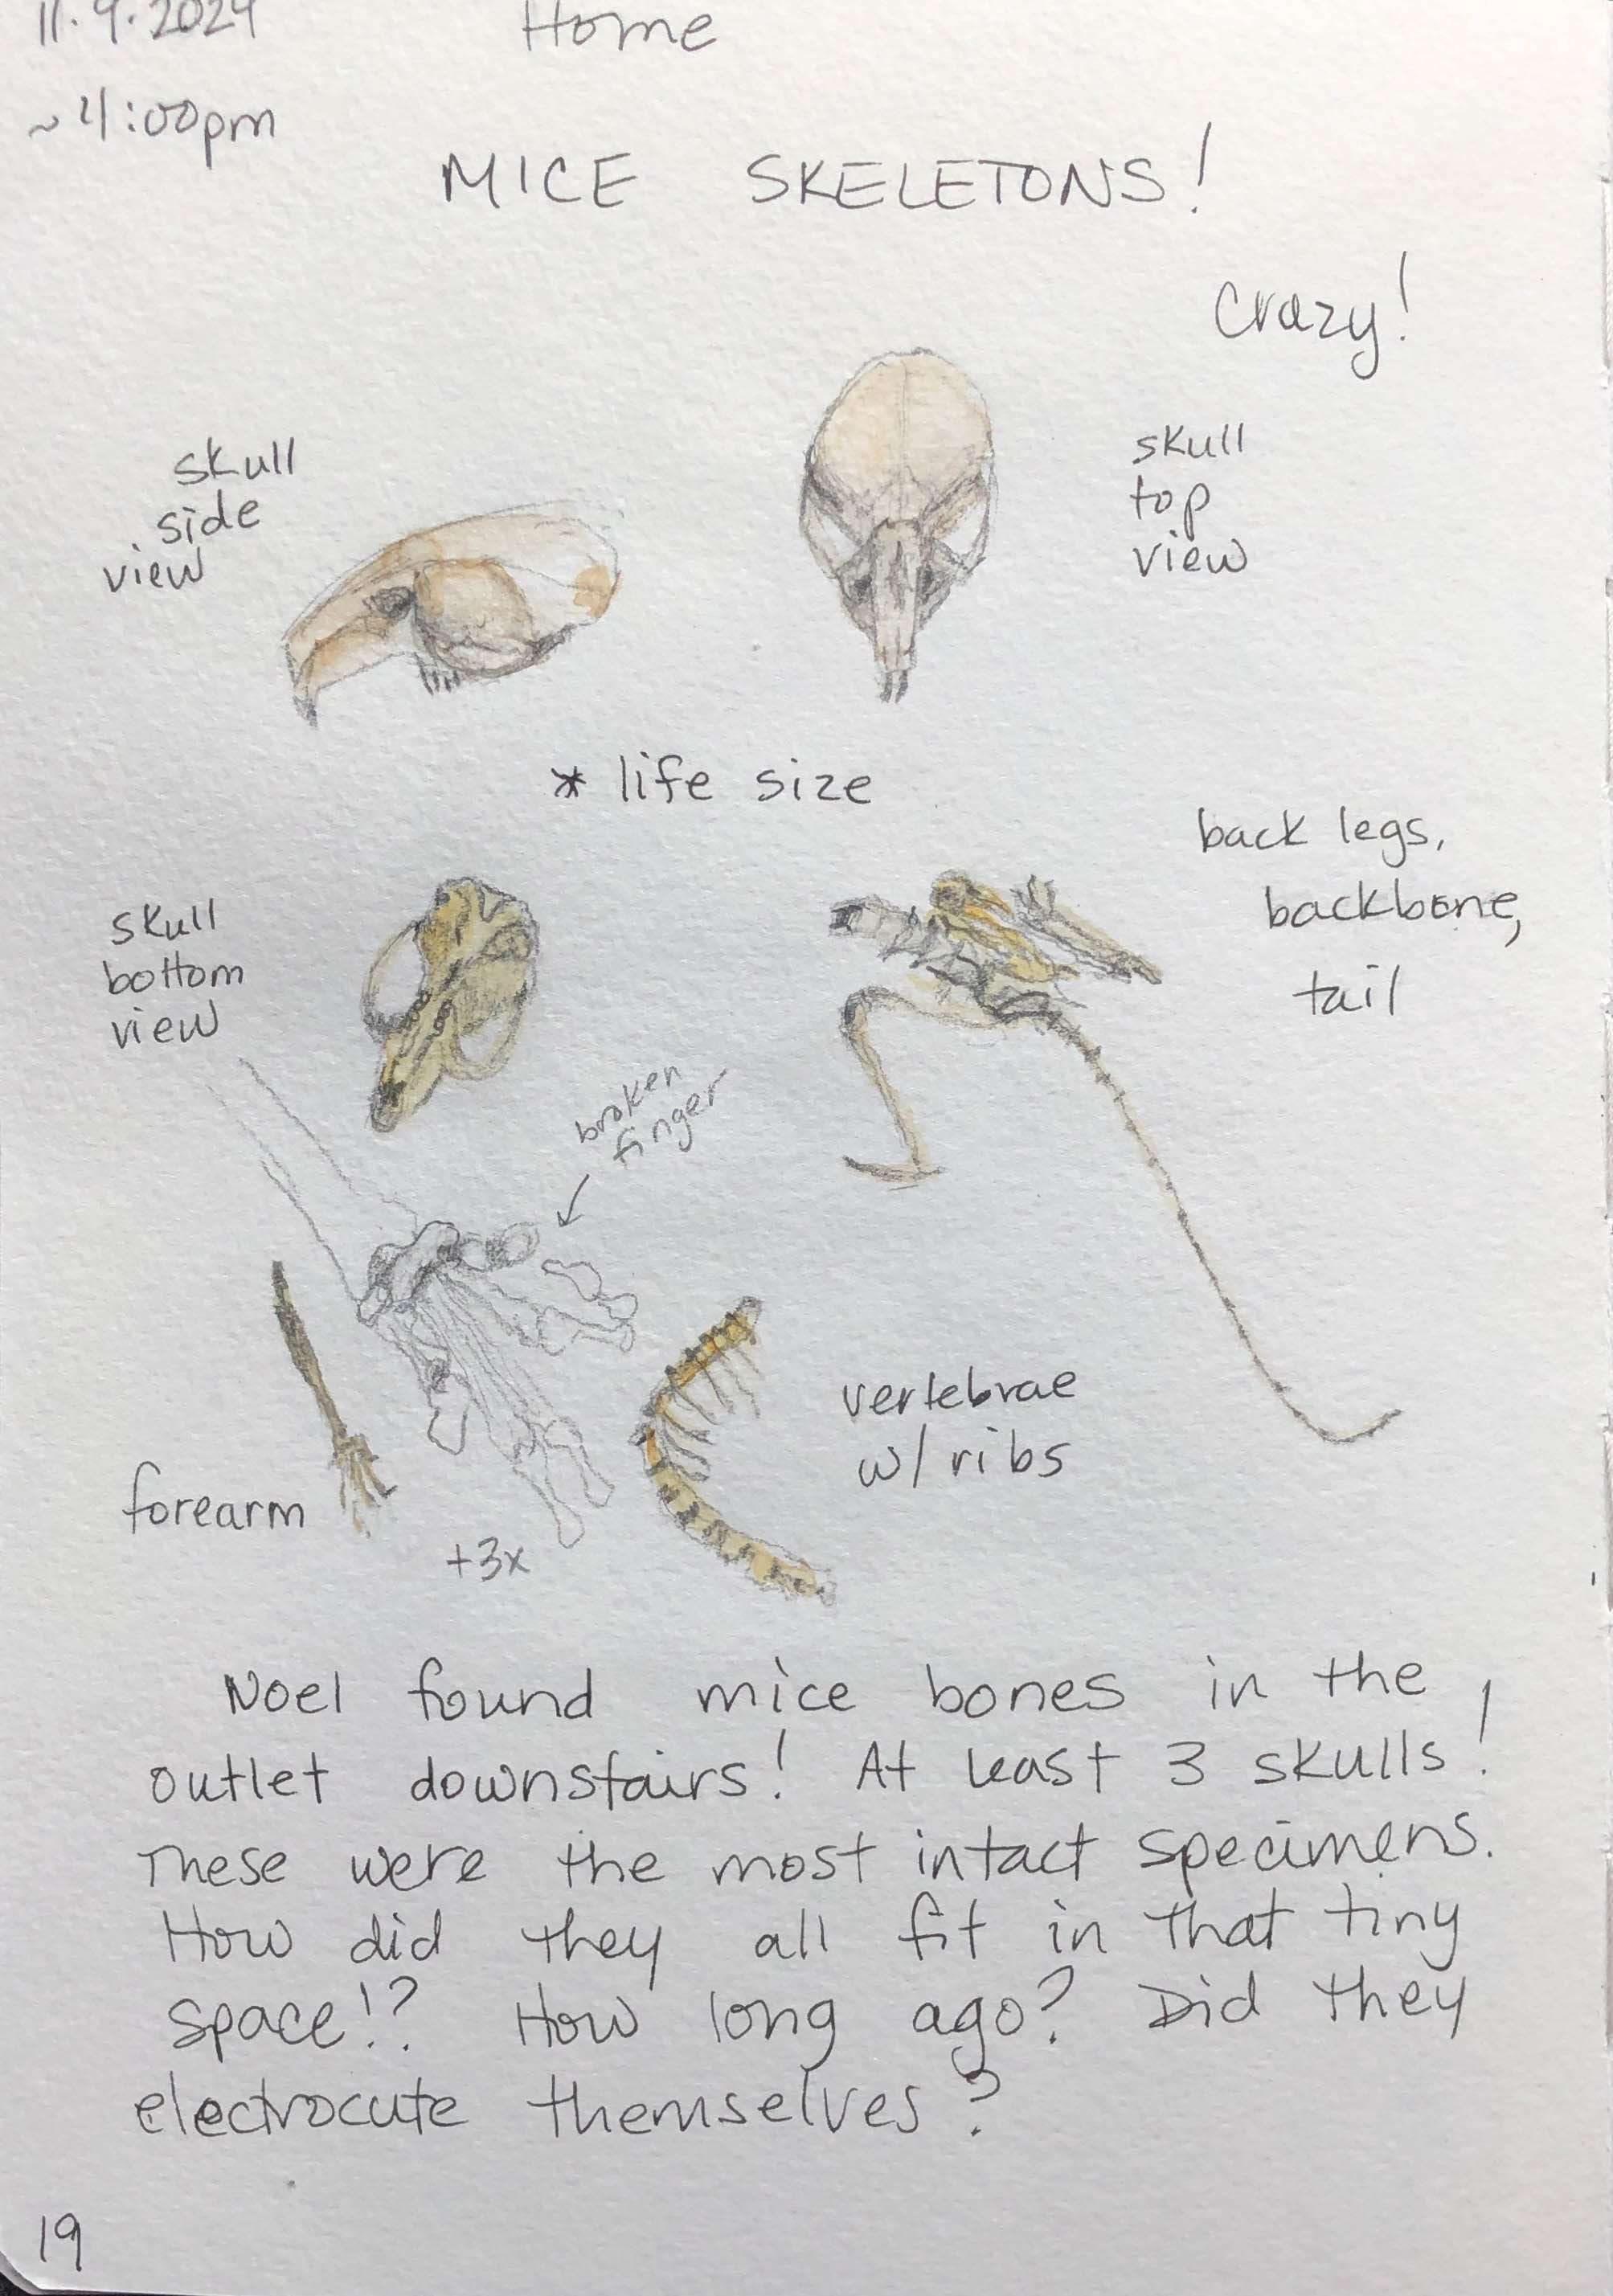 11.9.2024
Home
~4:00pm
MICE SKELETONS!
Crazy!
skull
side
view
skull
top
view
* life size
back legs,
backbone,
tail
skull
bottom
view
broken
finger
vertebrae
w/ ribs
forearm
+3x
Noel found mice bones in the
outlet downstairs! At least 3 skulls!
These were the most intact specimens.
How did they all fit in that tiny
space!? How long ago? Did they
electrocute themselves?
19